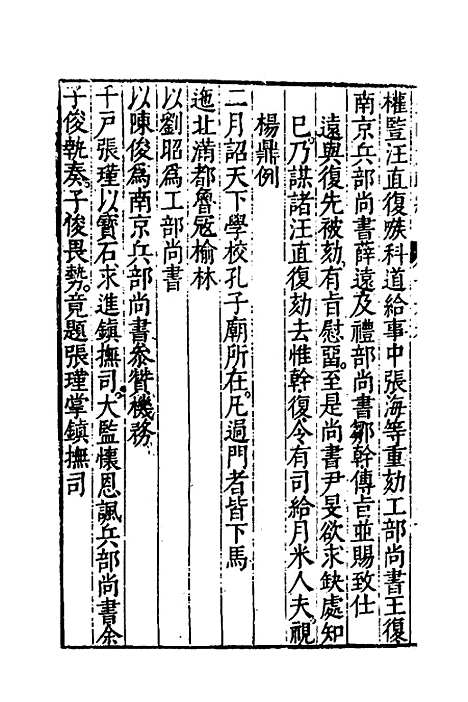 權豎汪直復嗾科道給事中張海等重劾工部尚書王復
南京兵部尚書薛遠及禮部尚書鄒幹傳旨並賜致仕
遠與復先被劾有旨慰畱至是尚書尹旻欲求缺處知
巳乃謀諸汪直復劾去惟幹復令有司給月米人夫視
楊鼎例
二月詔天下學校孔子廟所在凡過門者皆下馬
迤北滿都魯寇榆林
以劉昭爲工部尚書
以陳俊爲南京兵部尚書叅贊機務
千戸張瑾以寳石求進鎮撫司大監懷恩諷兵部尚書余
子俊執奏子俊畏勢竟題張瑾掌鎮撫司